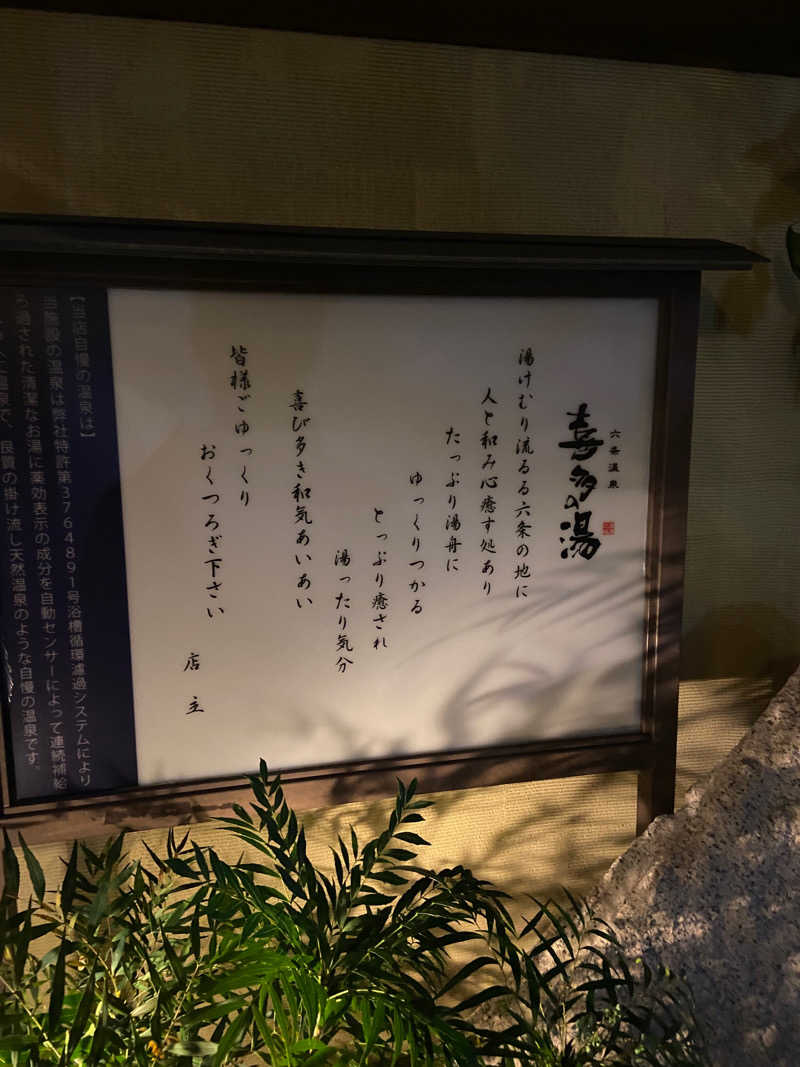 六条温泉
喜多の湯
湯けむり流るる六条の地に
人と和み心癒す処あり
たっぷり湯舟に
ゆっくりつかる
とっぷり癒され
湯ったり気分
喜び多き和気あいあい
皆様ごゆっくり
おくつろぎ下さい
店 主
【当店自慢の温泉は】
当施設の温泉は弊社特許第3764891号浴槽循環濾過システムにより
ろ過された清潔なお湯に薬効表示の成分を自動センサーによって連続補給
温泉で、良質の掛け流し天然温泉のような自慢の温泉です。